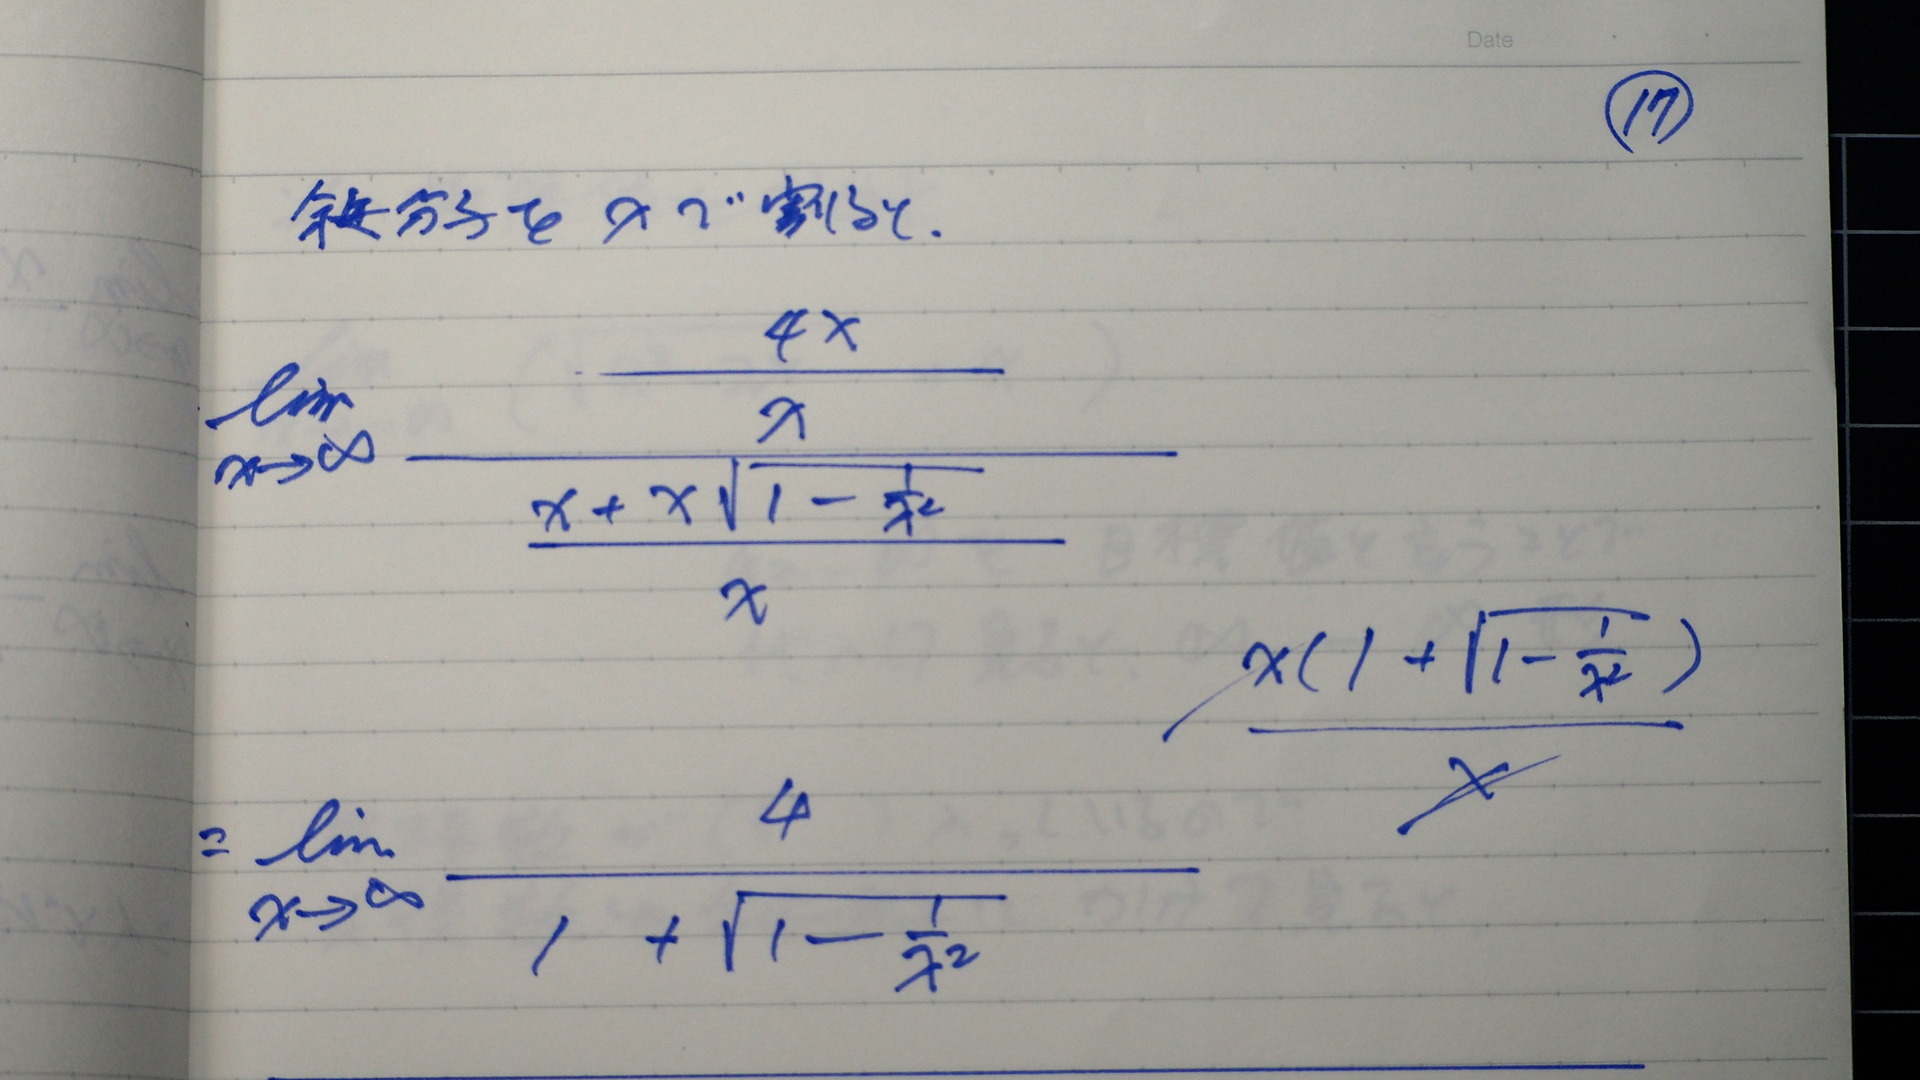 Date
⑰
分子を x で割ると.
lim x→∞ (4x / x) / ((x + x√(1 − 1/x²)) / x)
x(1 + √(1 − 1/x²)) / x
= lim x→∞ 4 / (1 + √(1 − 1/x²))